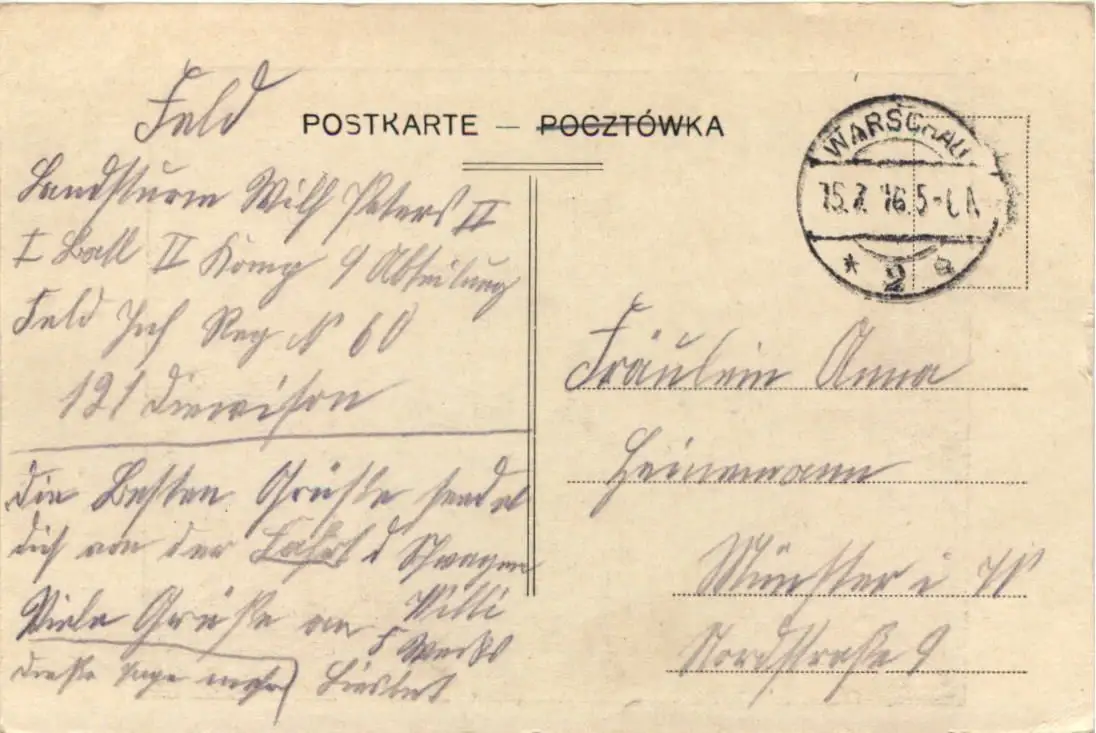 Feld
POSTKARTE — POCZTÓWKA
WARSCHAU
15.7.16.5-6N.
* 2 a
Landsturm Wilh Peters II
I Batl II Komp 9 Abteilung
Feld Inf Reg N 60
121 Diewison
Die Besten Grüße sendet
dich von der Fahrt d Schwager
Willi
Viele Grüße an
Fräulein Anna
Heinemann
Münster i W
Nordstraße 9